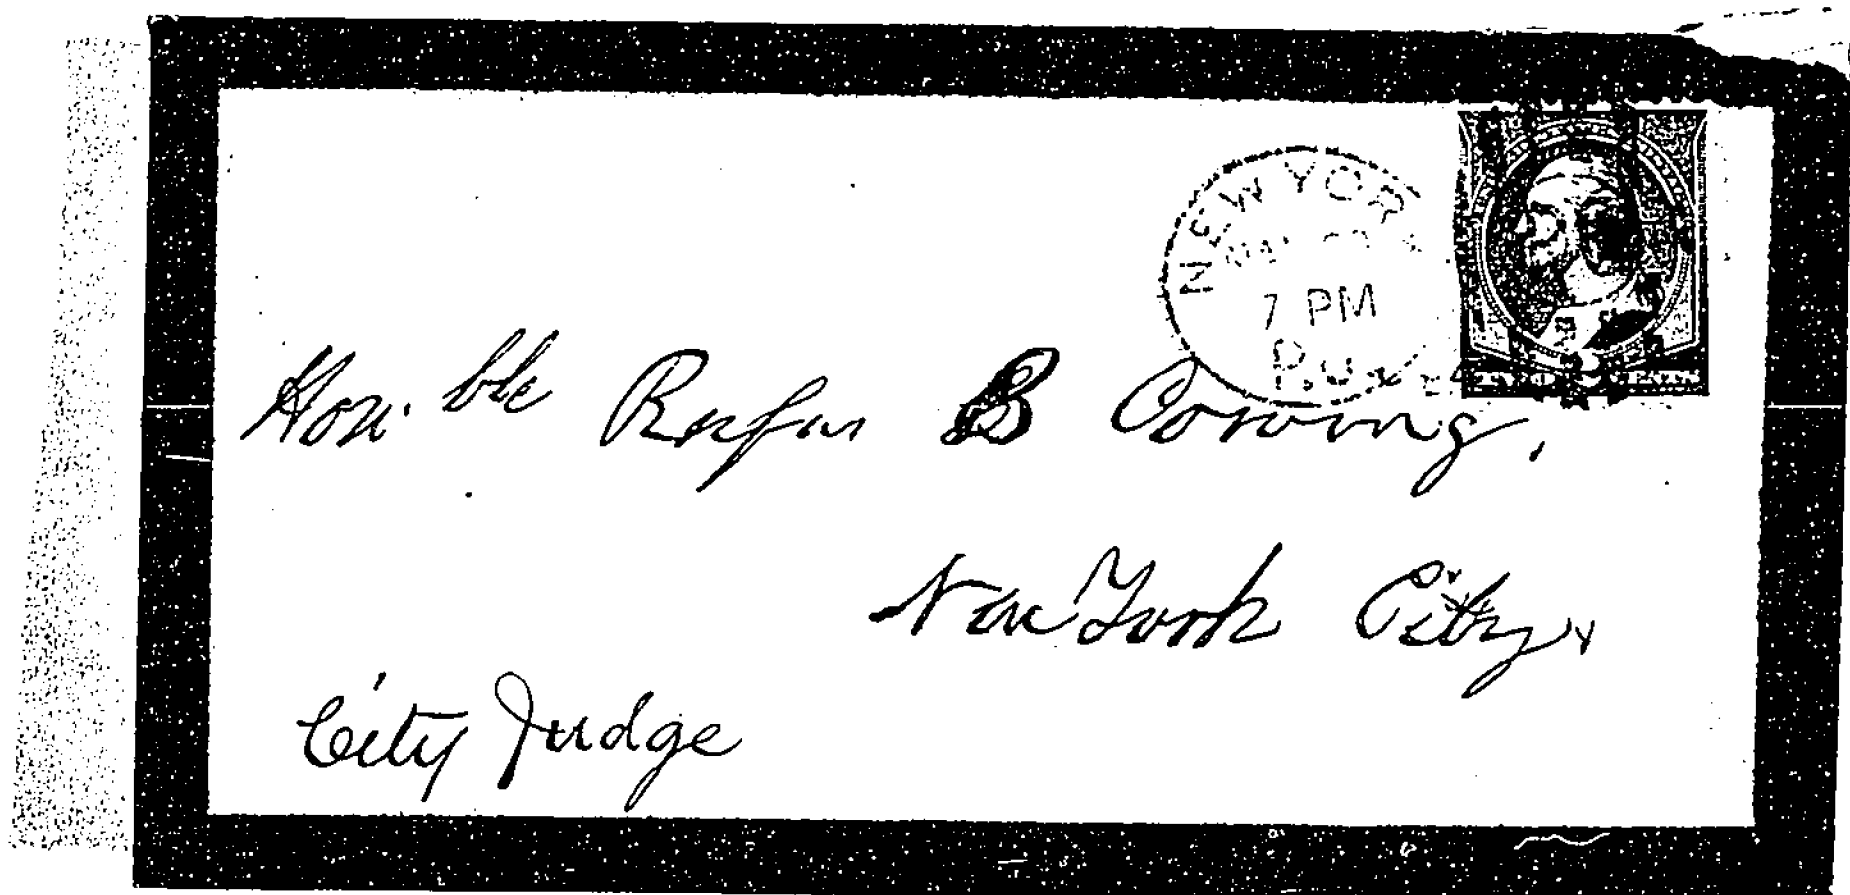 NEW YOR
7 PM
Hon.ble Rufus B Cowing,
New York City
City Judge